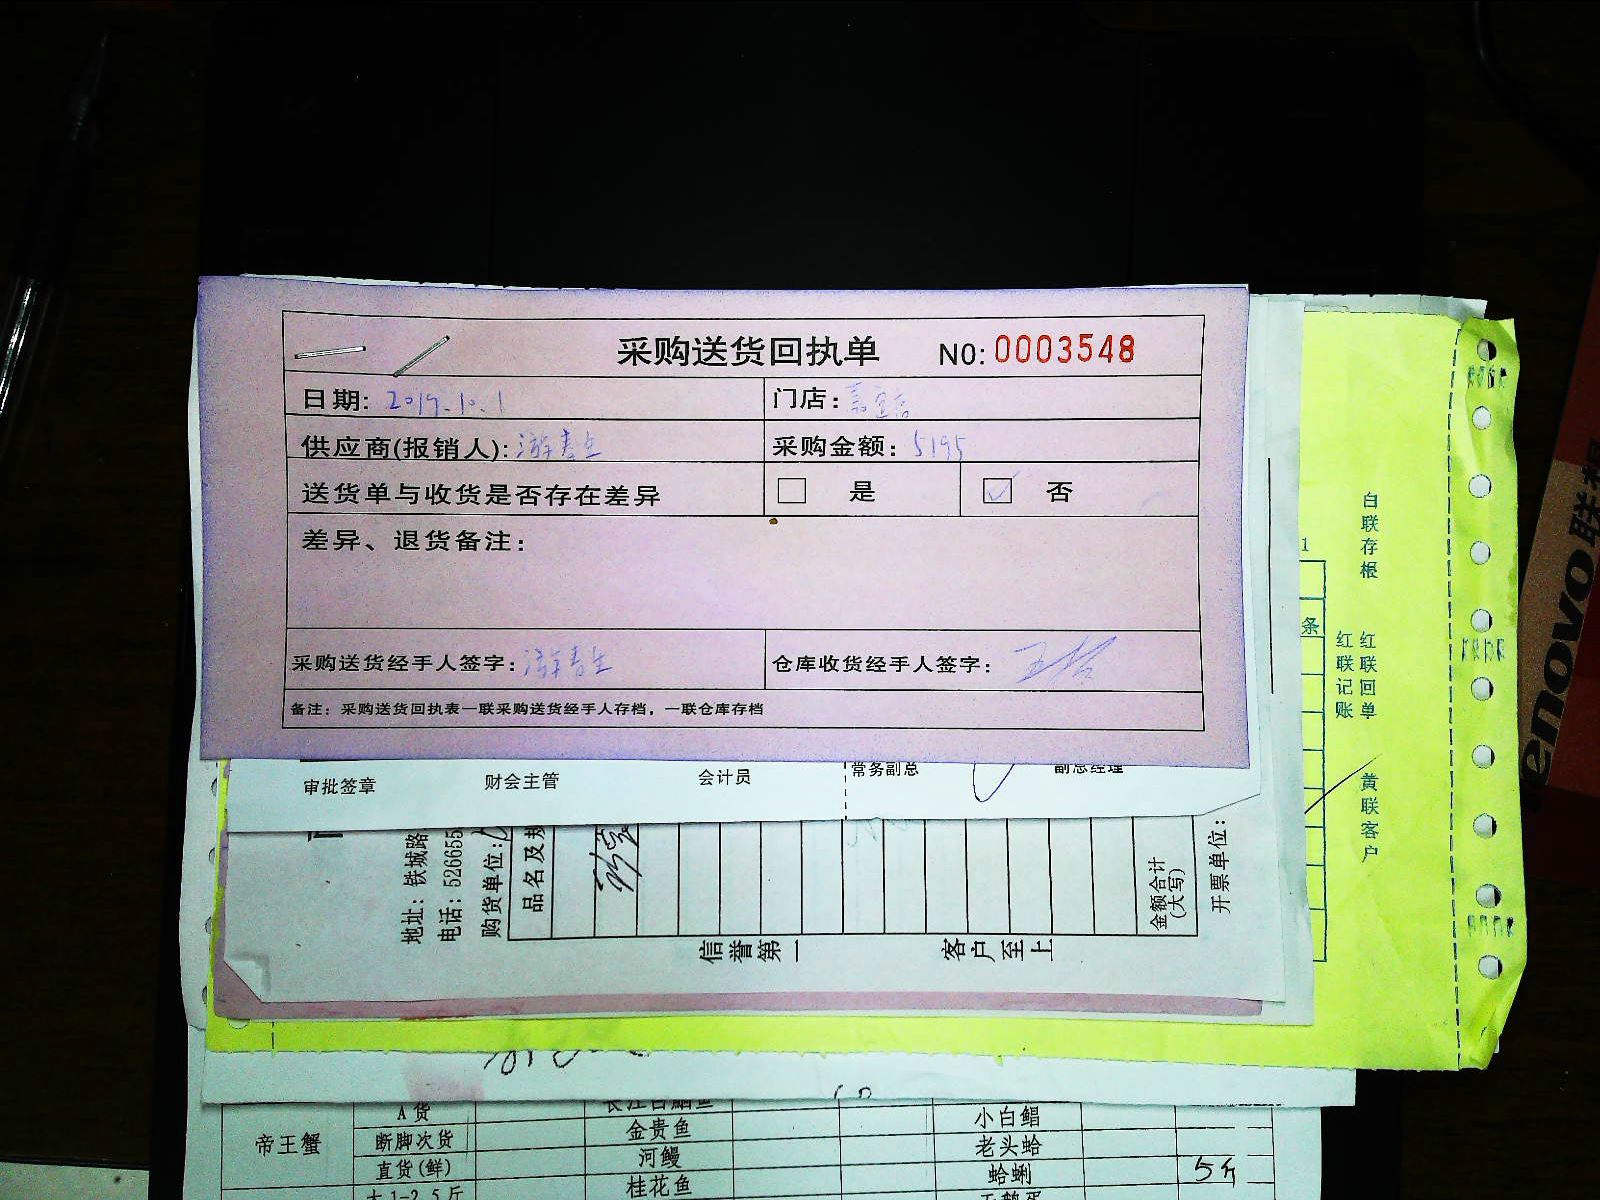 采购送货回执单 NO: 0003548
日期: 2019.10.1 门店:
供应商(报销人): 游春生 采购金额: 5195
送货单与收货是否存在差异 是 ✓ 否
差异、退货备注:
采购送货经手人签字: 游春生 仓库收货经手人签字:
备注: 采购送货回执表一联采购送货经手人存档,一联仓库存档
审批签章 财会主管 会计员 常务副总 副总经理
地址: 铁城路
电话: 526655
购货单位:
品名及规
金额合计
(大写)
开票单位:
信誉第一 客户至上
1
条
白联存根
红联回单
红联记账
黄联客户
lenovo 联想
A货 小白鲳
帝王蟹 断脚次货 金贵鱼 老头蛤
直货(鲜) 河鳗 蛤蜊 5斤
大1-2.5斤 桂花鱼